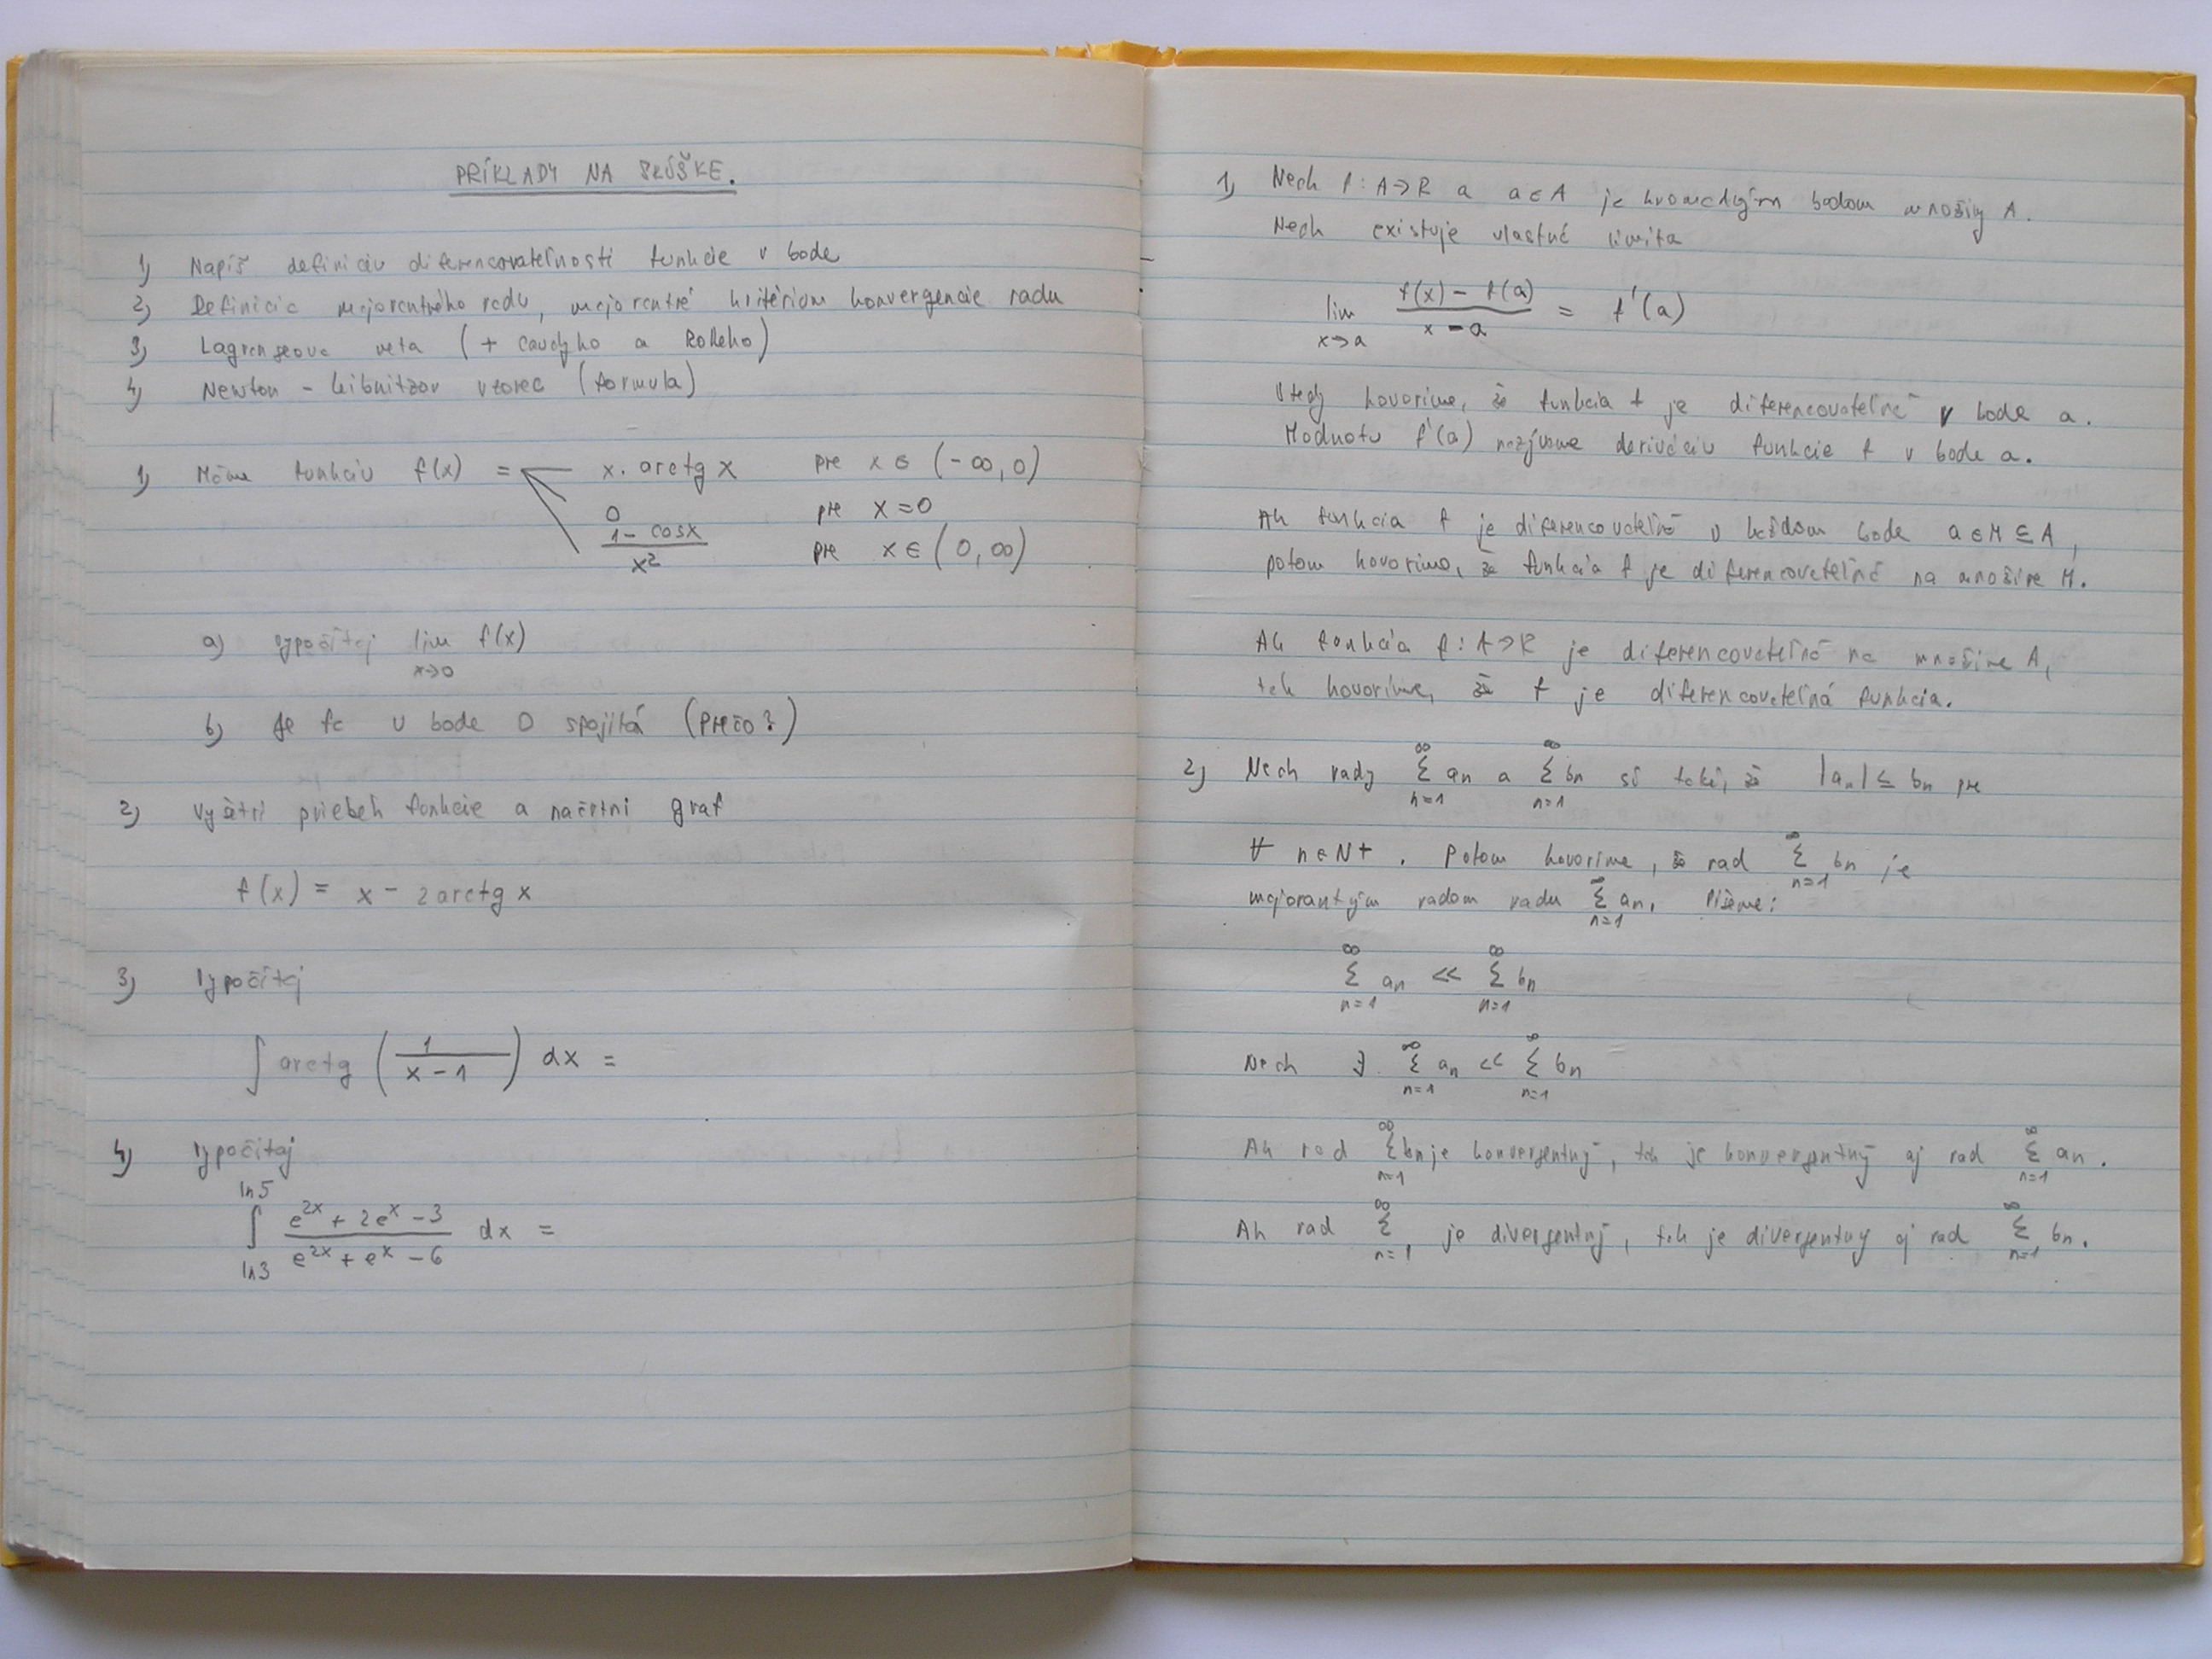 PRÍKLADY NA SKÚŠKE.
1) Napíš definíciu diferencovateľnosti funkcie v bode
2) Definícia majorantného radu, majorantné kritérium konvergencie radu
3) Lagrangeova veta (+ Cauchyho a Rolleho)
4) Newton - Leibnitzov vzorec (formula)
1) Máme funkciu f(x) = x. arctg x pre x ∈ (-∞,0)
0 pre x = 0
1 - cosx / x² pre x ∈ (0,∞)
a) Vypočítaj lim x→0 f(x)
b) Je fc v bode 0 spojitá (prečo?)
2) Vyšetri priebeh funkcie a načrtni graf
f(x) = x - 2 arctg x
3) Vypočítaj
∫ arctg (1 / x - 1) dx =
4) Vypočítaj
∫ ln3 ln5 e^2x + 2e^x - 3 / e^2x + e^x - 6 dx =
1) Nech f: A→R a a∈A je hromadným bodom množiny A.
Nech existuje vlastná limita
lim x→a f(x) - f(a) / x - a = f'(a)
Vtedy hovoríme, že funkcia f je diferencovateľná v bode a.
Hodnotu f'(a) nazývame deriváciu funkcie f v bode a.
Ak funkcia f je diferencovateľná v každom bode a∈M⊆A,
potom hovoríme, že funkcia f je diferencovateľná na množine M.
Ak funkcia f: A→R je diferencovateľná na množine A,
tak hovoríme, že f je diferencovateľná funkcia.
2) Nech rady ∑ n=1 ∞ an a ∑ n=1 ∞ bn sú také, že |an| ≤ bn pre
∀ n∈N+. Potom hovoríme, že rad ∑ n=1 ∞ bn je
majorantným radom radu ∑ n=1 ∞ an. Píšeme:
∑ n=1 ∞ an << ∑ n=1 ∞ bn
Nech ∃ ∑ n=1 ∞ an << ∑ n=1 ∞ bn
Ak rad ∑ n=1 ∞ bn je konvergentný, tak je konvergentný aj rad ∑ n=1 ∞ an.
Ak rad ∑ n=1 ∞ je divergentný, tak je divergentný aj rad ∑ n=1 ∞ bn.